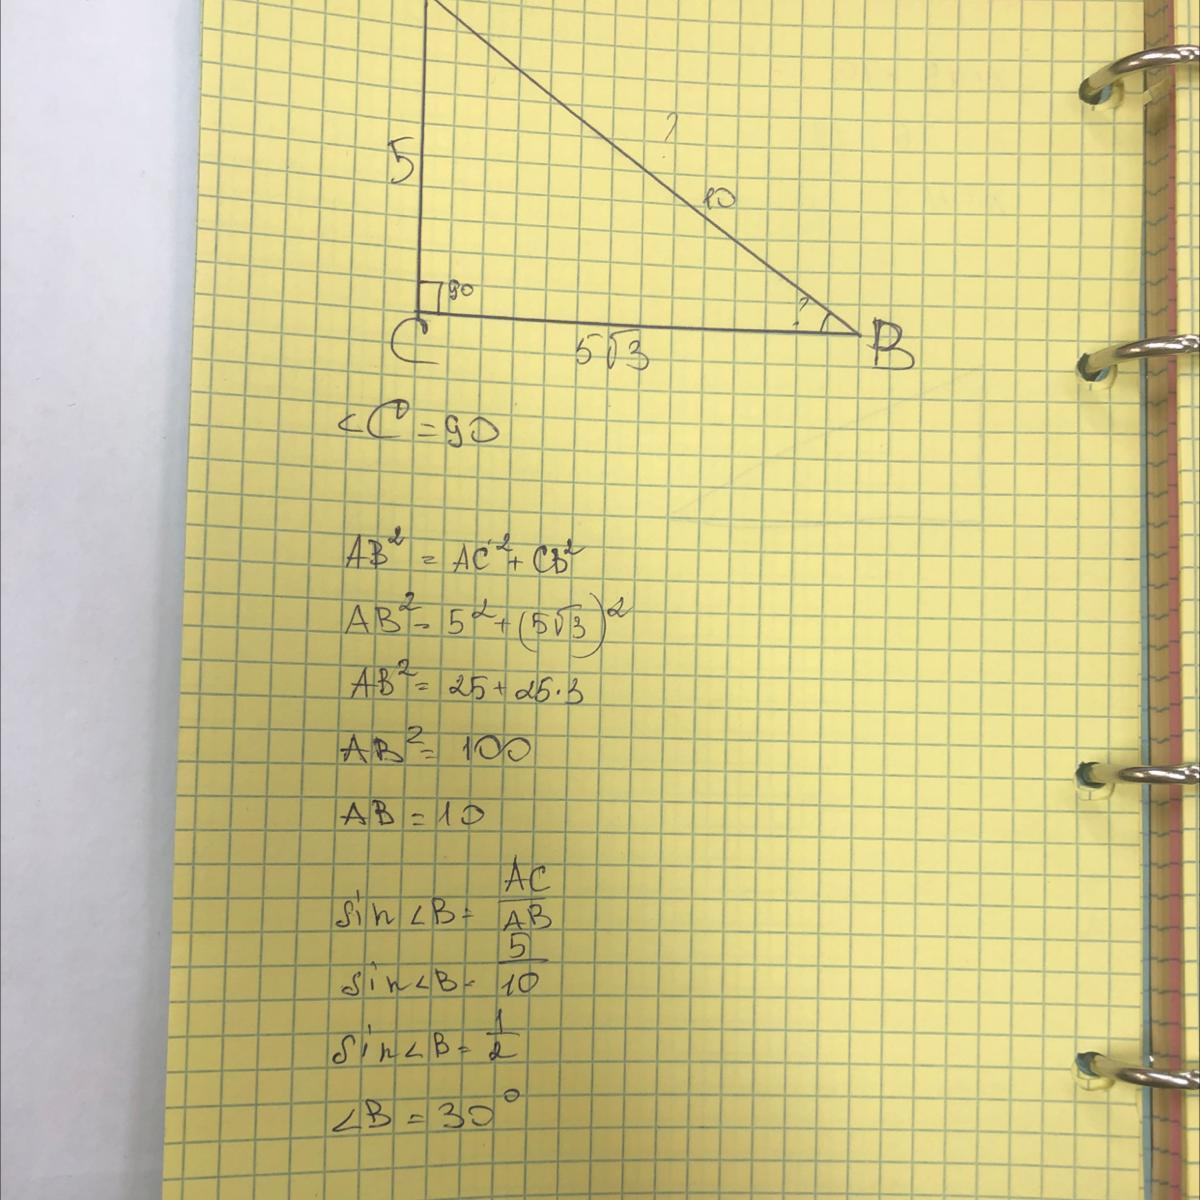 ?
5
10
90
?
C
5√3
B
<C=90
AB²=AC²+CB²
AB²=5²+(5√3)²
AB²=25+25·3
AB²=100
AB=10
sin<B=AC/AB
sin<B=5/10
sin<B=1/2
<B=30°